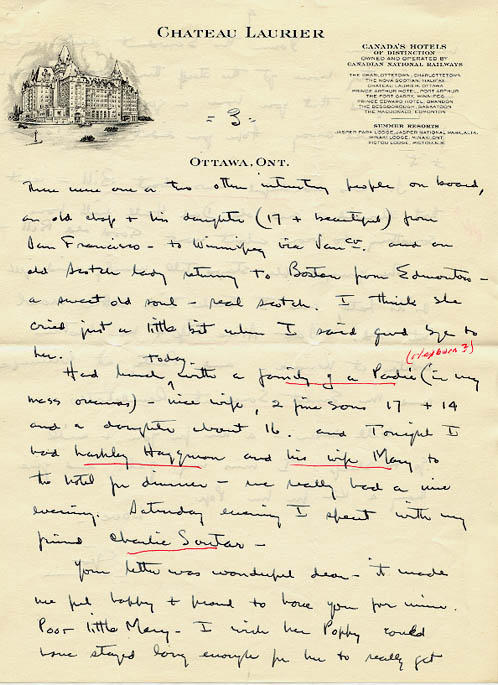 CHATEAU LAURIER
CANADA'S HOTELS
OF DISTINCTION
OWNED AND OPERATED BY
CANADIAN NATIONAL RAILWAYS
THE CHARLOTTETOWN, CHARLOTTETOWN
THE NOVA SCOTIAN, HALIFAX
CHATEAU LAURIER, OTTAWA
PRINCE ARTHUR HOTEL, PORT ARTHUR
THE FORT GARRY, WINNIPEG
PRINCE EDWARD HOTEL, BRANDON
THE BESSBOROUGH, SASKATOON
THE MACDONALD, EDMONTON
SUMMER RESORTS
JASPER PARK LODGE, JASPER NATIONAL PARK, ALTA.
MINAKI LODGE, MINAKI, ONT.
PICTOU LODGE, PICTOU, N.S.
= 3 =
OTTAWA, ONT.
There were one or two other interesting people on board,
an old chap + his daughter (17 + beautiful) from
San Francisco - to Winnipeg via Vancr. and an
old Scotch lady returning to Boston from Edmonton -
a sweet old soul - real scotch. I think she
cried just a little bit when I said good bye to
her.
(Hepburn?)
Had lunch today with a family of a Padre (in my
mess overseas) - nice wife, 2 fine sons 17 + 14
and a daughter about 16. and Tonight I
had and his wife Mary to
the hotel for dinner - we really had a nice
evening. Saturday evening I spent with my
friend Charlie Soutar -
Your letter was wonderful dear - it made
me feel happy + proud to have you for mine.
Poor little Mary - I wish her Poppy could
have stayed long enough for her to really get